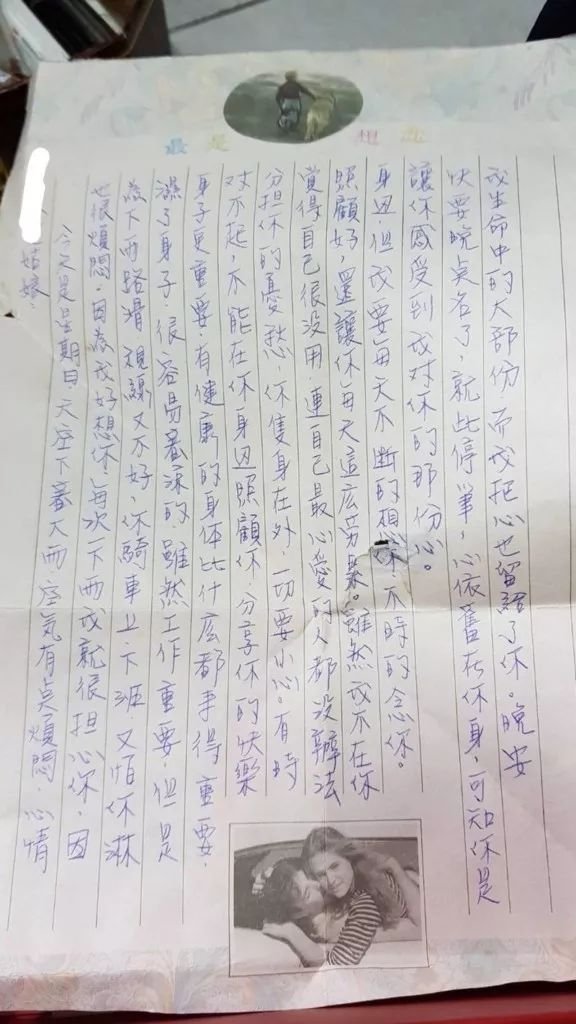 最是 想
姑娘.
今天是星期日,天空下著大雨空氣有点煩悶.心情
也很煩悶.因為我好想你,每次一下雨我就很担心你,因
為下雨路滑,視線又不好,你騎車上下班,又怕你淋
濕了身子,很容易著涼的,雖然工作重要,但是
身子更重要,有健康的身体比什麼都事得重要.
对不起,不能在你身边照顧你,分享你的快樂
分担你的憂愁,你隻身在外,一切要小心。有時
覺得自己很没用,連自己最心愛的人都没辦法
照顧好,還讓你每天這麼劳累。雖然我不在你
身边,但我要每天不断的想你,不時的念你。
讓你感受到我对你的那份心。
快要晚点名了,就此停筆,心依舊在你身,可知你是
我生命中的大部份,而我把心也留給了你。晚安